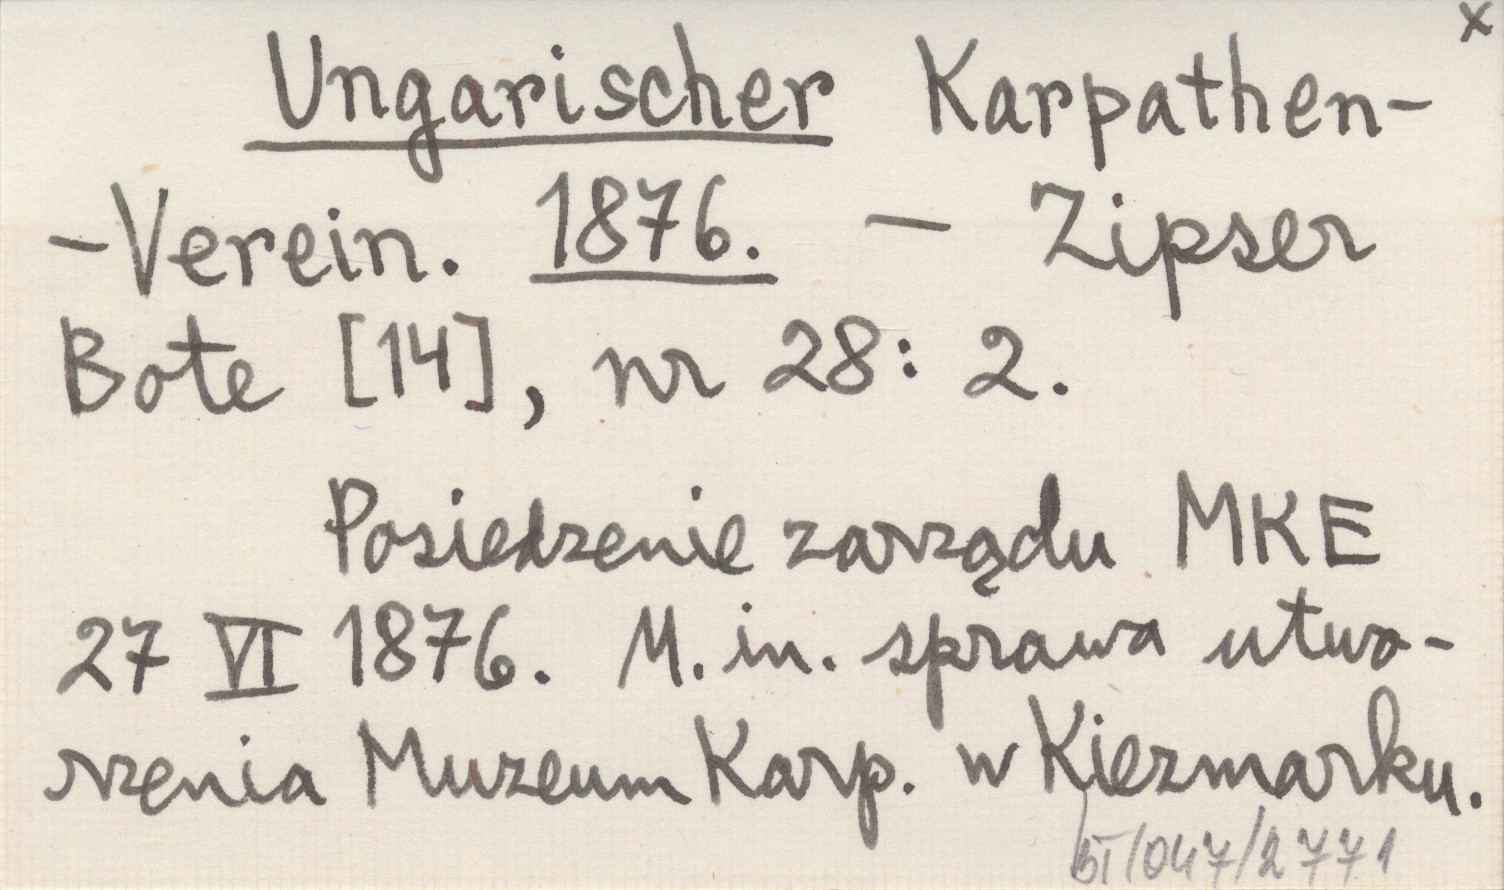 x
Ungarischer Karpathen-
-Verein. 1876. – Zipser
Bote [14], nr 28: 2.
Posiedzenie zarządu MKE
27 VI 1876. M. in. sprawa utwo-
rzenia Muzeum Karp. w Kiezmarku.
BT/047/2771